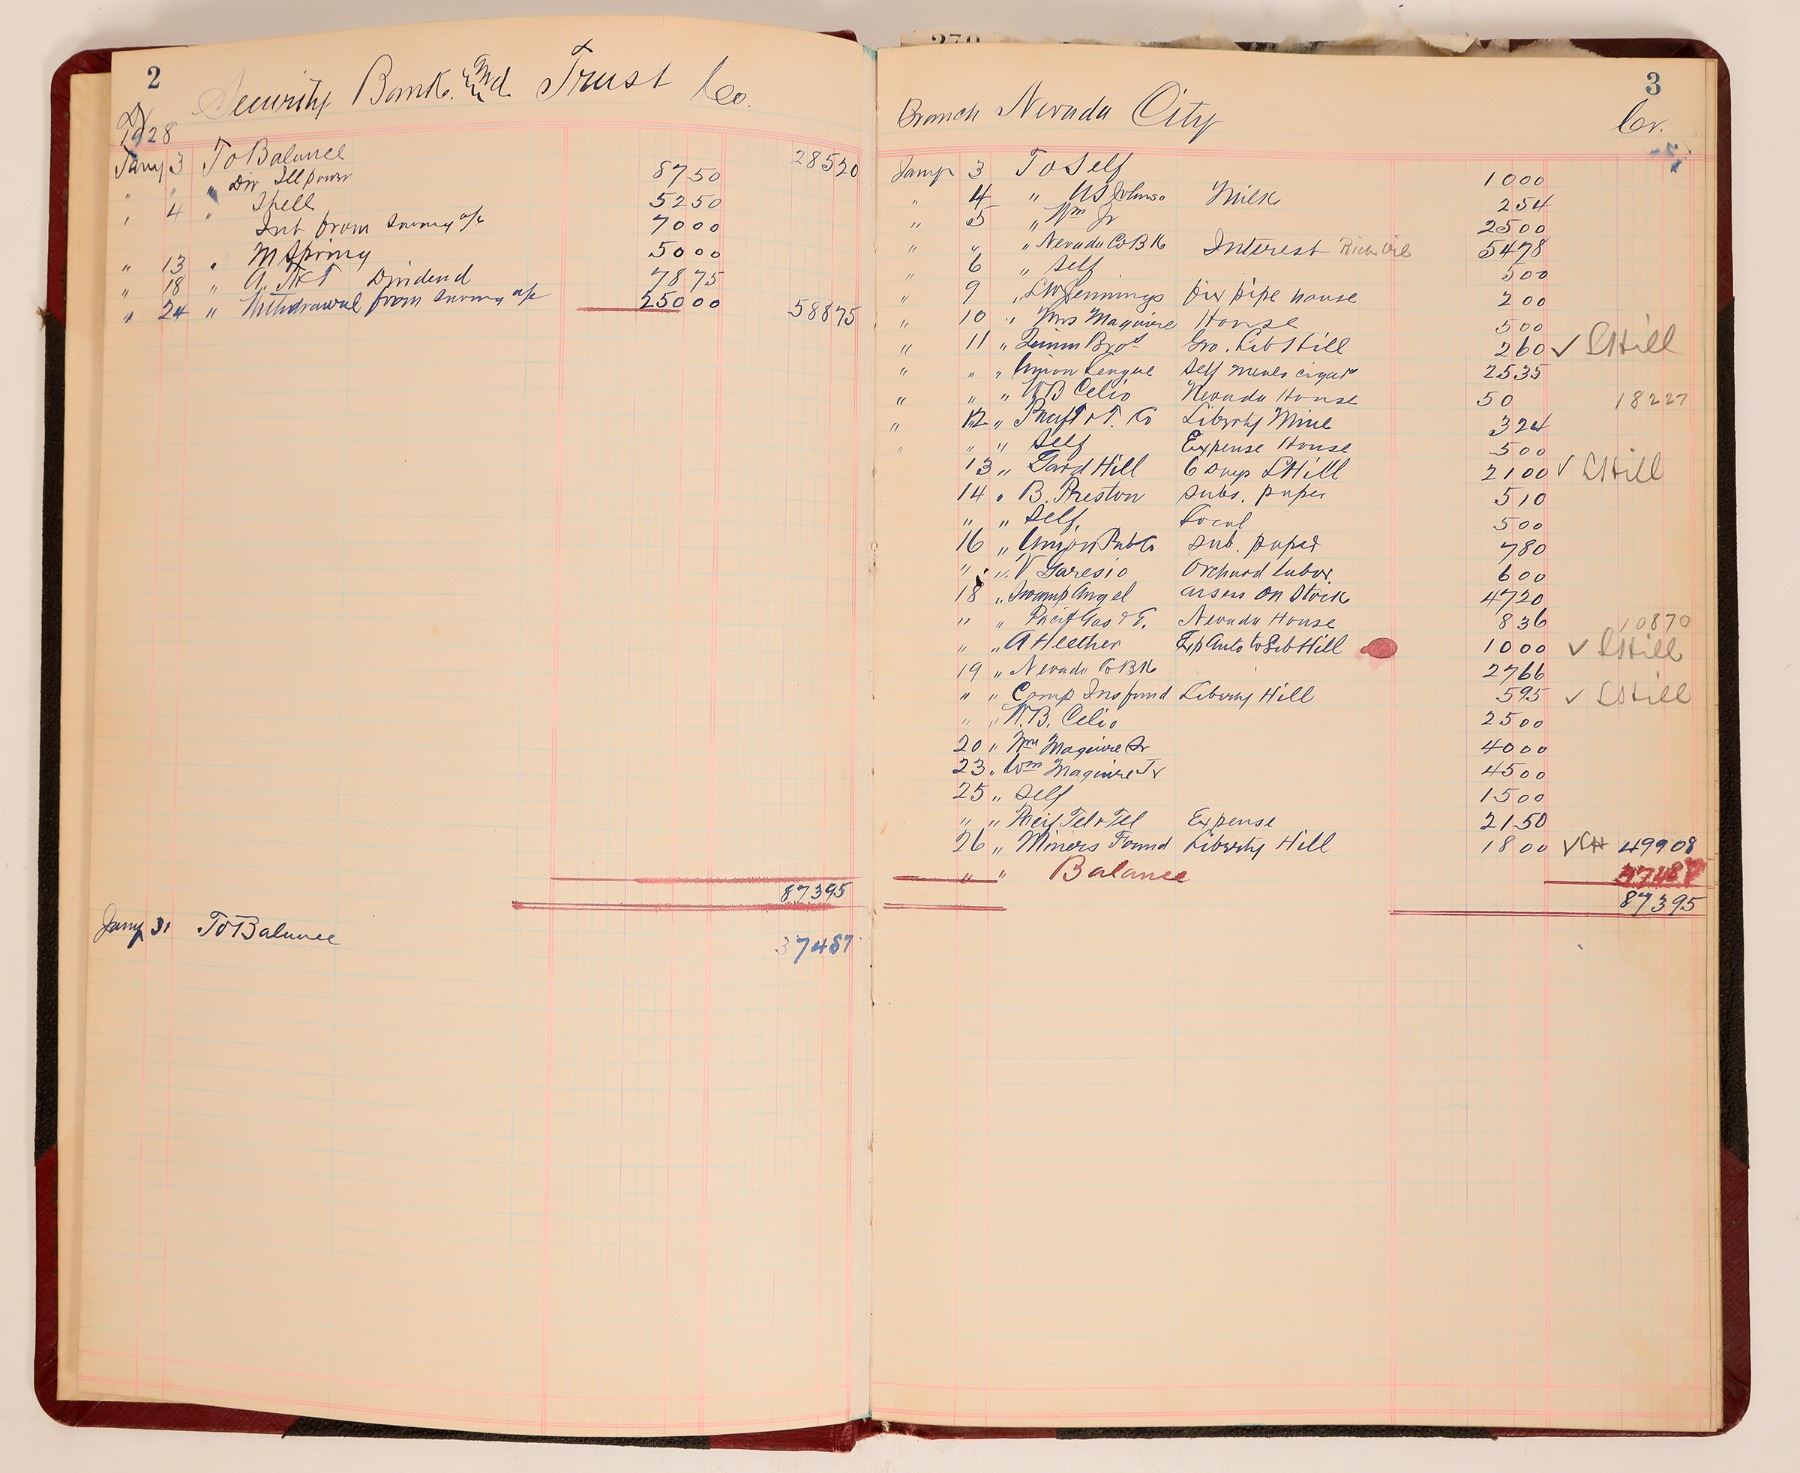 2
Security Bank and Trust Co.
Dr
1928
Jany 3 To Balance 28520
" " " Div Ill power 8750
" 4 " Spell 5250
Int from Saving a/c 7000
" 13 " M Spring 5000
" 18 " A. T&T Dividend 7875
" 24 " Withdrawal from Saving a/c 25000 58875
87395
Jany 31 To Balance 37487
270
3
Branch Nevada City Cr.
Jany 3 To Self 1000
" 4 " Johnso Milk 254
" 5 " Wm Jr 2500
" " " Nevada Co Bk Interest 5478
" 6 " Self 500
" 9 " Jennings fix pipe house 200
" 10 " Mrs Maguire House 500
" 11 " Bros Gro. Lib Hill 260 ✓ LHill
" " " Union League Self cigar 2535
" " " W B Celio Nevada House 50 18227
" 12 " & T. Co Liberty Mine 324
" " " Self Expense House 500
13 " Ford Hill Comp LHill 2100 ✓ LHill
14 " B. Preston subs. paper 510
" " Self, 500
16 " Union Pub Co sub. paper 780
" " V Garesio Orchard labor 600
18 " Swamp Angel assess on Stock 4720
" " Pacif Gas & E. Nevada House 836 10870
" " A Heether Exp Auto to Lib Hill 1000 ✓ LHill
19 " Nevada Co Bk 2766
" " Comp Ins fund Liberty Hill 595 ✓ LHill
" " W.B. Celio 2500
20 " Wm Maguire Sr 4000
23 " Wm Maguire Jr 4500
25 " Self 1500
" " Pacif Tel & Tel Expense 2150
26 " Miners Found Liberty Hill 1800 ✓ LH 49908
" " Balance 37487
87395